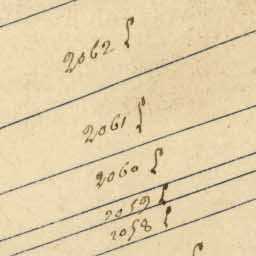 2062 ſ
2061 ſ
2060 ſ
2059 ſ
2058 ſ
ſ